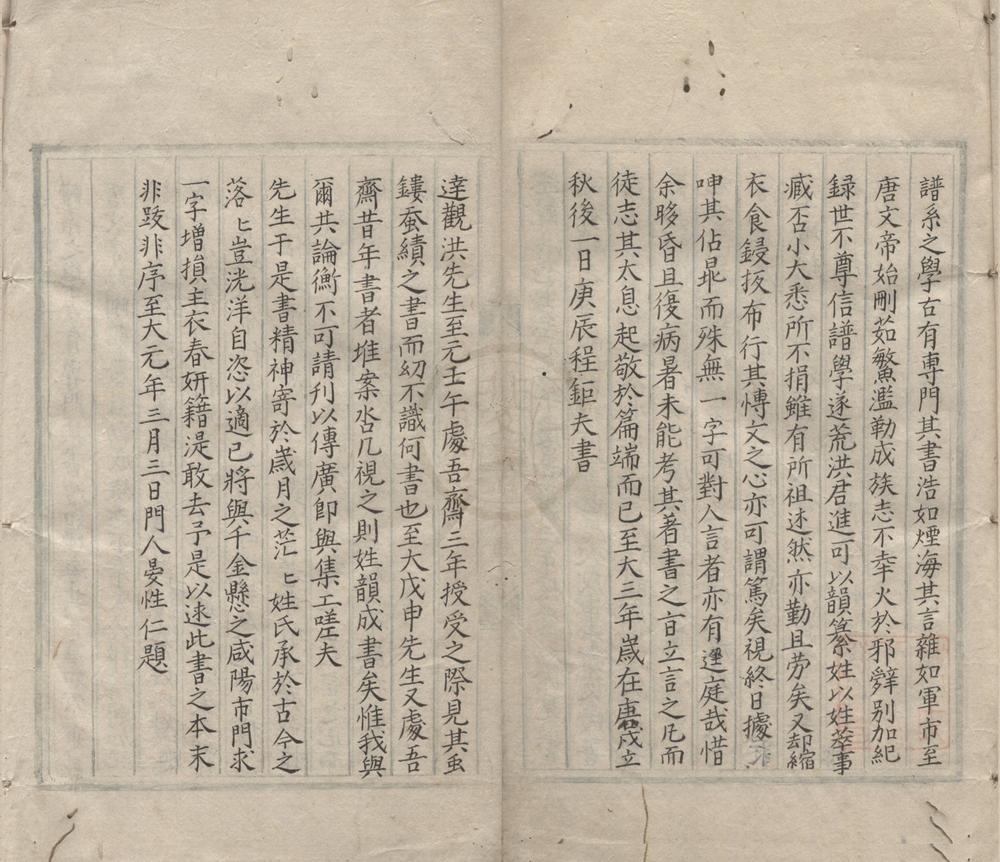 譜系之學古有專門其書浩如煙海其言雜如軍市至
唐文帝始刪茹蟞濫勒成族志不幸火於邪辤別加紀
録世不尊信譜學遂荒洪君進可以韻纂姓以姓萃事
臧否小大悉所不捐雖有所祖述然亦勤且劳矣又却縮
衣食鋟扳布行其慱文之心亦可謂篤矣視終日據
呻其佔畢而殊無一字可對人言者亦有逕庭哉惜
余眵昏且復病暑未能考其著書之㫖立言之凡而
徒志其太息起敬於篇端而已至大三年嵗在庚戌立
秋後一日庚辰程鉅夫書
達觀洪先生至元壬午處吾齋三年授受之際見其䖝
鏤蚕績之書而㓜不識何書也至大戊申先生又處吾
齋昔年書者堆案氷几視之則姓韻成書矣惟我與
爾共論衡不可請刊以傳廣即與集工嗟夫
先生于是書精神寄於嵗月之茫〻姓氏承於古今之
落〻豈洸洋自恣以適已將與千金懸之咸陽市門求
一字增損主衣春妍籍湜敢去予是以述此書之本末
非跋非序至大元年三月三日門人晏性仁題